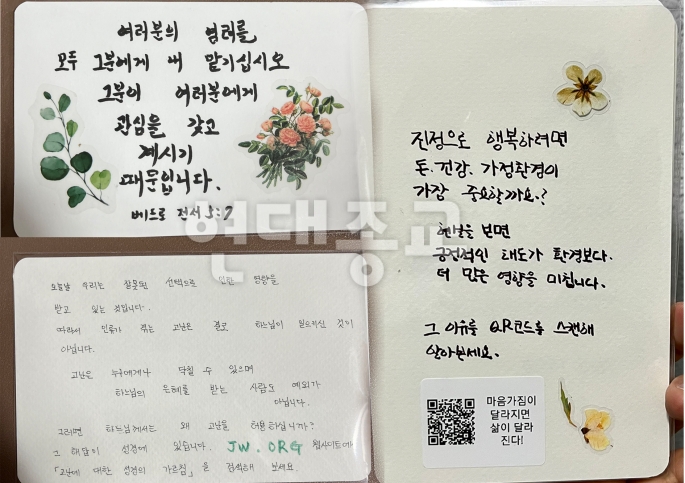 여러분의 염려를
모두 그분에게 내 맡기십시오
그분이 여러분에게
관심을 갖고
계시기
때문입니다.
베드로 전서 5:7
오늘날 우리는 잘못된 선택으로 인한 영향을
받고 있는 것입니다.
따라서 인류가 겪는 고난은 결코 하느님이 일으키신 것이
아닙니다.
고난은 누구에게나 닥칠 수 있으며
하느님의 은혜를 받는 사람도 예외가
아닙니다.
그러면 하느님께서는 왜 고난을 허용하십니까?
그 해답이 성경에 있습니다. JW.ORG 웹사이트에서
「고난에 대한 성경의 가르침」을 검색해 보세요.
진정으로 행복하려면
돈.건강.가정환경이
가장 중요할까요?
옛날을 보면
긍정적인 태도가 환경보다.
더 많은 영향을 미칩니다.
그 이유를 QR코드를 스캔해
알아보세요.
마음가짐이
달라지면
삶이 달라
진다!
현대종교